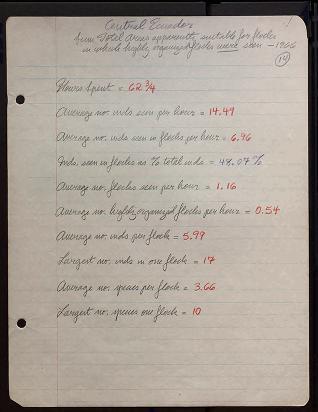 Central Ecuador
from Total areas apparently suitable for flocks
in which highly organized flocks were seen - 1966
14
Hours Spent = 62 3/4
Average no. inds seen per hour = 14.49
Average no. inds seen in flocks per hour = 6.96
Inds. seen in flocks as % total inds = 48.07%
Average no. flocks seen per hour = 1.16
Average no. highly organized flocks per hour = 0.54
Average no. inds per flock = 5.99
Largest no. inds in one flock = 17
Average no. species per flock = 3.66
Largest no. species one flock = 10